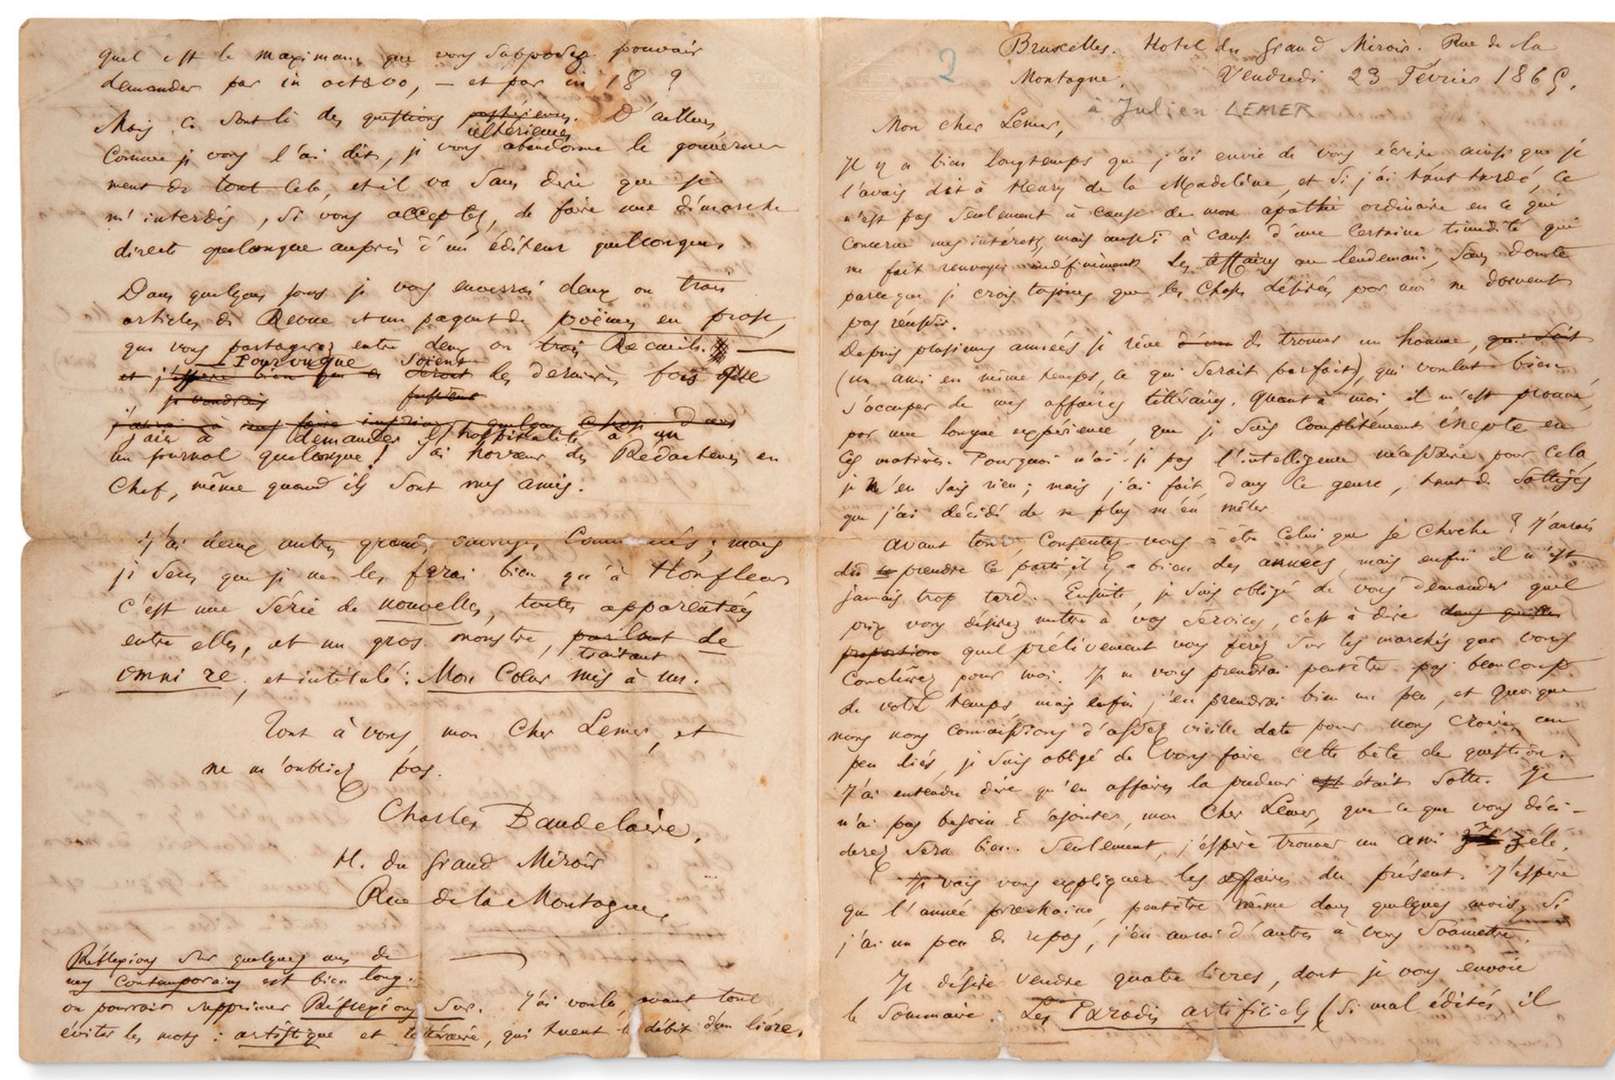 2
Bruxelles. Hotel du Grand Miroir. Rue de la
Montagne. Vendredi 23 Février 1865.
à Julien LEMER
Mon cher Lemer,
Il y a bien longtemps que j'ai envie de vous écrire, ainsi que je
l'avais dit à Henry de la Madelène, et si j'ai tant tardé, ce
n'est pas seulement à cause de mon apathie ordinaire en ce qui
concerne mes intérêts, mais aussi à cause d'une certaine timidité qui
me fait renvoyer indéfiniment les affaires au lendemain, sans doute
parce que je crois toujours que les choses désirées par moi ne doivent
pas réussir.
Depuis plusieurs années je rêve de trouver un homme, qui soit
(un ami en même temps, ce qui serait parfait), qui voulut bien
s'occuper de mes affaires littéraires. Quant à moi, il m'est prouvé,
par une longue expérience, que je suis complètement inepte en
ces matières. Pourquoi n'ai-je pas l'intelligence nécessaire pour cela,
je n'en sais rien ; mais j'ai fait, dans ce genre, tant de sottises
que j'ai décidé de ne plus m'en mêler
Avant tout, consentez-vous à être celui que je cherche ? J'aurais
dû prendre ce parti il y a bien des années, mais enfin il n'est
jamais trop tard. Ensuite, je suis obligé de vous demander quel
prix vous désirez mettre à vos services, c'est à dire dans quelle
proportion quel prélèvement vous ferez sur les marchés que vous
conclurez pour moi. Je ne vous prendrai peutêtre pas beaucoup
de votre temps, mais enfin j'en prendrai bien un peu, et quoique
nous nous connaissions d'assez vieille date pour nous croire un
peu liés, je suis obligé de vous faire cette bête de question.
J'ai entendu dire qu'en affaires la pudeur est était sotte. Je
n'ai pas besoin d'ajouter, mon cher Lemer, que ce que vous déci-
derez sera bien. Seulement, j'espère trouver un ami zélé.
Je vais vous expliquer les affaires du présent. J'espère
que l'année prochaine, peutêtre même dans quelques mois, si
j'ai un peu de repos, j'en aurai d'autres à vous soumettre.
Je désire vendre quatre livres, dont je vous envoie
le sommaire. Les Paradis artificiels (si mal édités, il
quel est le maximum que vous supposez pouvoir
demander par in octavo, — et par in 18 ?
Mais ce sont là des questions postérieures. D'ailleurs,
ultérieures
comme je vous l'ai dit, je vous abandonne le gouverne-
ment de tout cela, et il va sans dire que je
m'interdis, si vous acceptez, de faire une démarche
directe quelconque auprès d'un éditeur quelconque.
Dans quelques jours je vous enverrai deux ou trois
articles de Revue et un paquet de poëmes en prose,
que vous partagerez entre deux ou trois Recueils. —
— Pourvu que soient
et j'espère bien que ce seront les dernières fois que
je voudrais fussent
j'aurai à
j'aie à demander l'hospitalité à un
un journal quelconque ! J'ai horreur des Rédacteurs en
chef, même quand ils sont mes amis.
J'ai deux autres grands ouvrages commencés ; mais
je sens que je ne les ferai bien qu'à Honfleur
c'est une série de nouvelles, toutes apparentées
entre elles, et un gros monstre, parlant de
traitant
omni re, et intitulé : Mon Cœur mis à nu.
Tout à vous, mon cher Lemer, et
ne m'oubliez pas.
Charles Baudelaire.
H. du Grand Miroir
Rue de la Montagne.
Réflexions sur quelques uns de
mes Contemporains est bien long.
on pourrait supprimer Réflexions sur. J'ai voulu, avant tout
éviter les mots : artistique et littéraire, qui tuent le débit d'un livre.